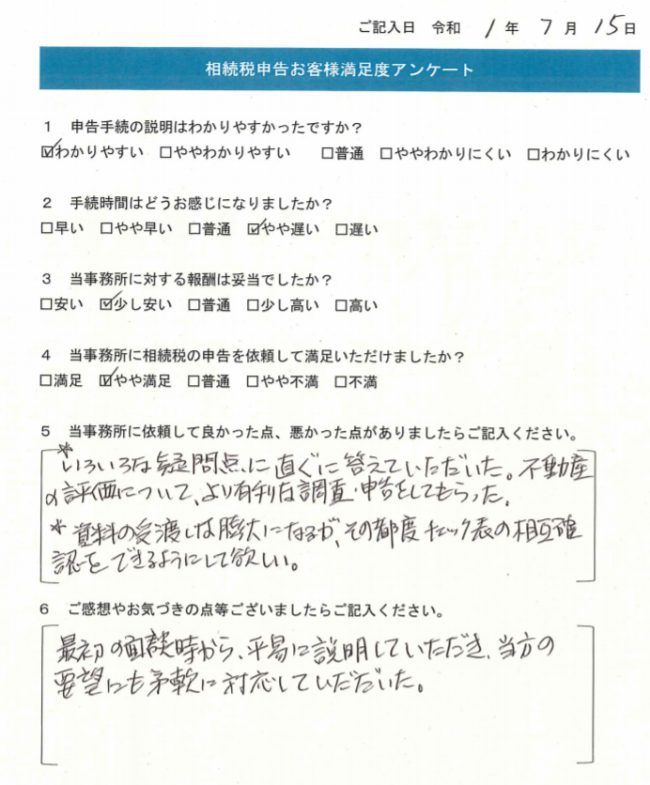 ご記入日 令和 1 年 7 月 15 日
相続税申告お客様満足度アンケート
1 申告手続の説明はわかりやすかったですか?
☑わかりやすい □ややわかりやすい □普通 □ややわかりにくい □わかりにくい
2 手続時間はどうお感じになりましたか?
□早い □やや早い □普通 ☑やや遅い □遅い
3 当事務所に対する報酬は妥当でしたか?
□安い ☑少し安い □普通 □少し高い □高い
4 当事務所に相続税の申告を依頼して満足いただけましたか?
□満足 ☑やや満足 □普通 □やや不満 □不満
5 当事務所に依頼して良かった点、悪かった点がありましたらご記入ください。
*いろいろな疑問点に直ぐに答えていただいた。不動産
の評価について、より有利な調査・申告をしてもらった。
*資料の受渡しは膨大になるが、その都度チェック表の相互確
認をできるようにして欲しい。
6 ご感想やお気づきの点等ございましたらご記入ください。
最初の面談時から、平易に説明していただき、当方の
要望にも柔軟に対応していただいた。